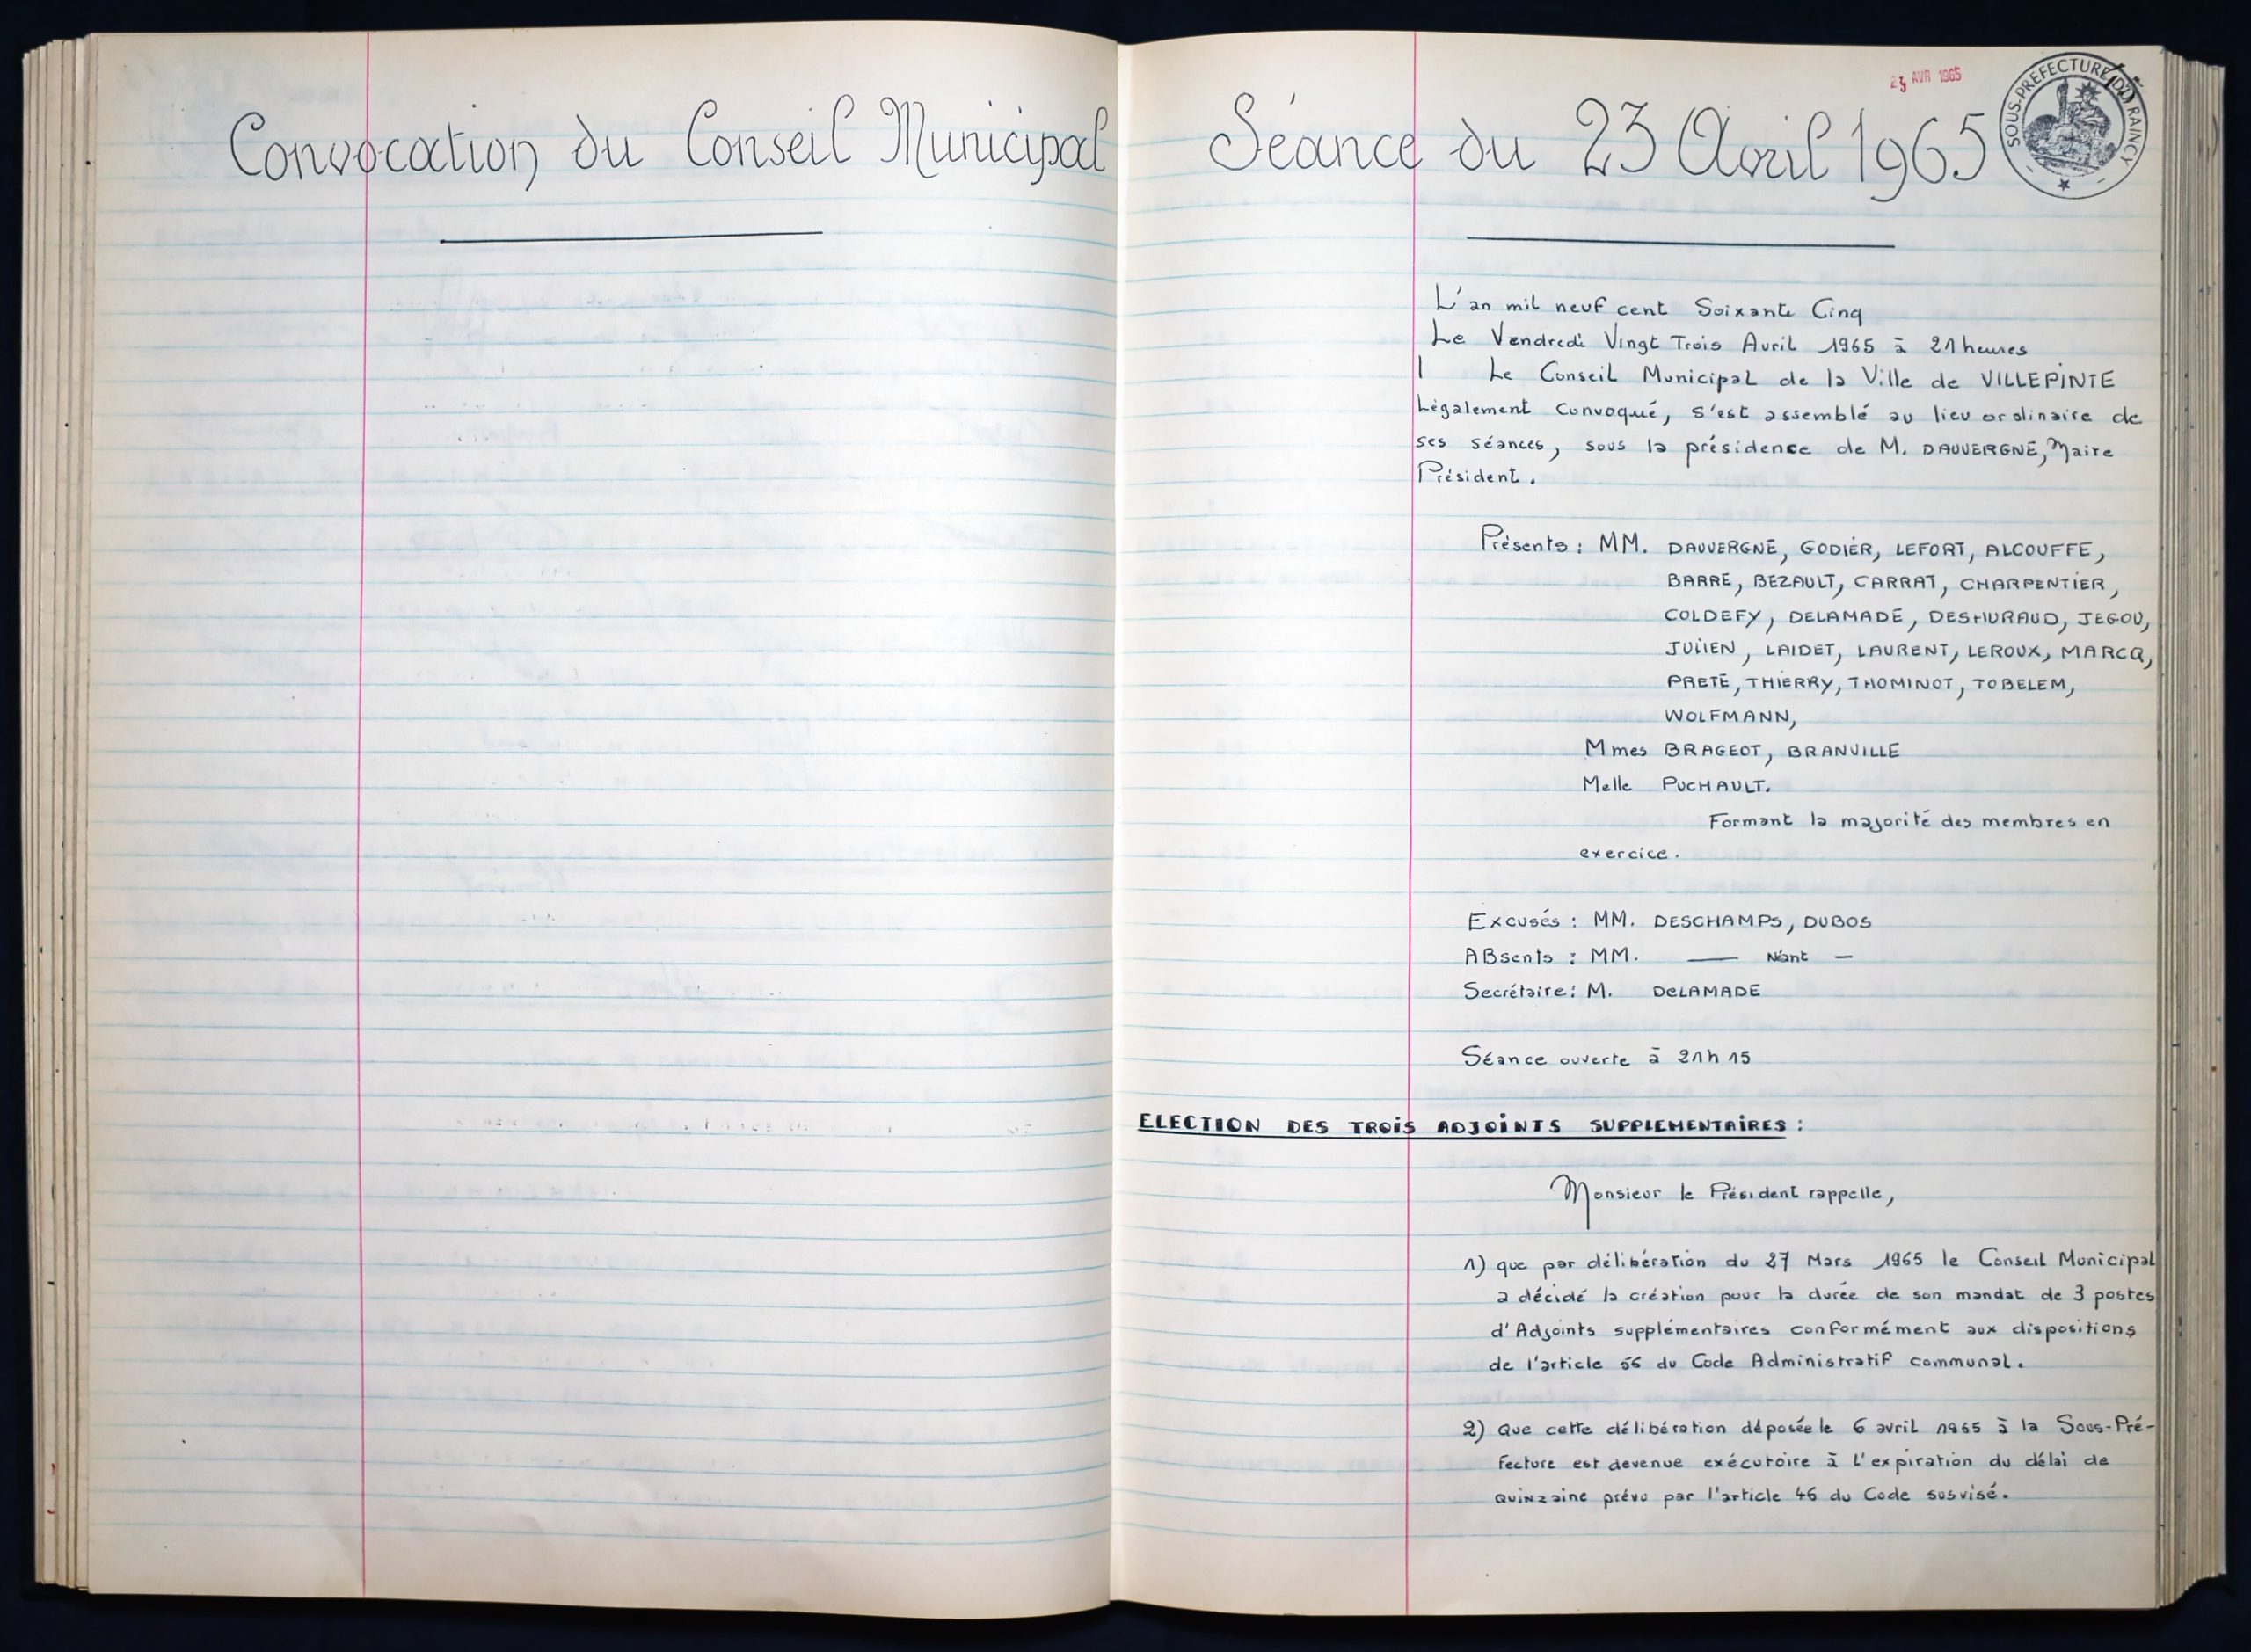 Convocation du Conseil Municipal
AVR 1965
SOUS-PREFECTURE DU RAINCY
Séance du 23 Avril 1965
L'an mil neuf cent Soixante Cinq
Le Vendredi Vingt Trois Avril 1965 à 21 heures
Le Conseil Municipal de la Ville de VILLEPINTE
Légalement Convoqué, s'est assemblé au lieu ordinaire de
ses séances, sous la présidence de M. DAUVERGNE, Maire
Président.
Présents : MM. DAUVERGNE, GODIER, LEFORT, ALCOUFFE,
BARRE, BEZAULT, CARRAT, CHARPENTIER,
COLDEFY, DELAMADE, DESHURAUD, JEGOU,
JULIEN, LAIDET, LAURENT, LEROUX, MARCQ,
PRETE, THIERRY, THOMINOT, TOBELEM,
WOLFMANN,
Mmes BRAGEOT, BRANVILLE
Melle PUCHAULT.
Formant la majorité des membres en
exercice.
Excusés : MM. DESCHAMPS, DUBOS
ABsents : MM. — Néant —
Secrétaire : M. DELAMADE
Séance ouverte à 21h 15
ELECTION DES TROIS ADJOINTS SUPPLEMENTAIRES :
Monsieur le Président rappelle,
1) que par délibération du 27 Mars 1965 le Conseil Municipal
a décidé la création pour la durée de son mandat de 3 postes
d'Adjoints supplémentaires conformément aux dispositions
de l'article 56 du Code Administratif communal.
2) Que cette délibération déposée le 6 avril 1965 à la Sous-Pré-
fecture est devenue exécutoire à l'expiration du délai de
quinzaine prévu par l'article 46 du Code susvisé.